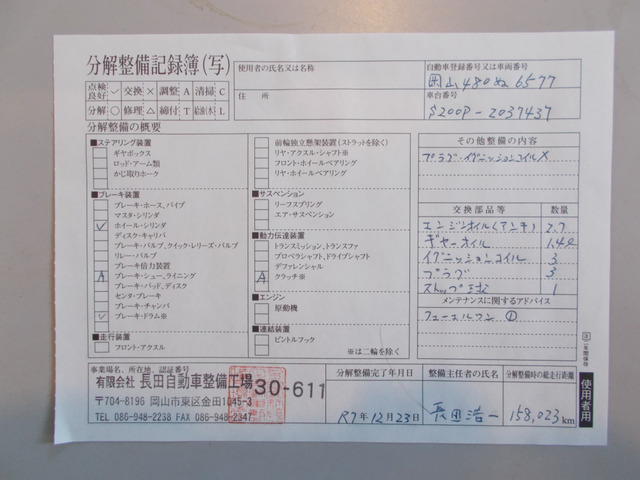 分解整備記録簿(写)
点検良好 ✓ 交換 × 調整 A 清掃 C
分解 ○ 修理 △ 締付 T 給油(水) L
使用者の氏名又は名称
住所
自動車登録番号又は車両番号
岡山480ぬ6577
車台番号
S200P-2037437
分解整備の概要
■ステアリング装置
ギヤボックス
ロッド・アーム類
かじ取りホーク
■ブレーキ装置
ブレーキ・ホース、パイプ
マスタ・シリンダ
✓ ホイール・シリンダ
ディスク・キャリパ
ブレーキ・バルブ、クイック・レリーズ・バルブ
リレー・バルブ
ブレーキ倍力装置
A ブレーキ・シュー、ライニング
ブレーキ・パッド、ディスク
センタ・ブレーキ
ブレーキ・チャンバ
✓ ブレーキ・ドラム※
■走行装置
フロント・アクスル
前輪独立懸架装置(ストラットを除く)
リヤ・アクスル・シャフト※
フロント・ホイールベアリング
リヤ・ホイールベアリング
■サスペンション
リーフスプリング
エア・サスペンション
■動力伝達装置
トランスミッション、トランスファ
プロペラシャフト、ドライブシャフト
デファレンシャル
A クラッチ※
■エンジン
原動機
■連結装置
ピントルフック
※は二輪を除く
その他整備の内容
プラグ・イグニッションコイル×
交換部品等 数量
エンジンオイル(アンチ) 2.7
ギヤーオイル
イグニッションコイル 3
プラグ 3
1
メンテナンスに関するアドバイス
フューエルワン ①
事業場名、所在地、認証番号
有限会社 長田自動車整備工場 30-611
〒704-8196 岡山市東区金田1045-3
TEL 086-948-2238 FAX 086-948-2347
分解整備完了年月日
R7年12月23日
整備主任者の氏名
長田浩一
分解整備時の総走行距離
158,023km
使用者用